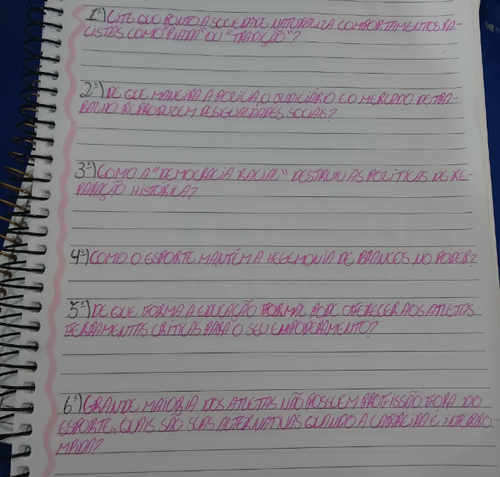 1º) CITE QUE PONTO A SOCIEDADE NATURALIZA COMPORTAMENTOS RA-
CISTAS COMO "PIADA" OU "TRADIÇÃO"?
2º) DE QUE MANEIRA A POLÍCIA, O JUDICIÁRIO E O MERCADO DE TRA-
BALHO REPRODUZEM DESIGUALDADES SOCIAIS?
3º) COMO A "DEMOCRACIA RACIAL" DESTRUIU AS POLÍTICAS DE RE-
PARAÇÃO HISTÓRICA?
4º) COMO O ESPORTE MANTÉM A HEGEMONIA DE BRANCOS NO PODER?
5º) DE QUE FORMA A EDUCAÇÃO FORMAL PODE OFERECER AOS ATLETAS
FERRAMENTAS CRÍTICAS PARA O SEU EMPODERAMENTO?
6º) GRANDE MAIORIA DOS ATLETAS NÃO POSSUEM PROFISSÃO FORA DO
ESPORTE. QUAIS SÃO SUAS ALTERNATIVAS QUANDO A CARREIRA É INTERRO-
MPIDA?